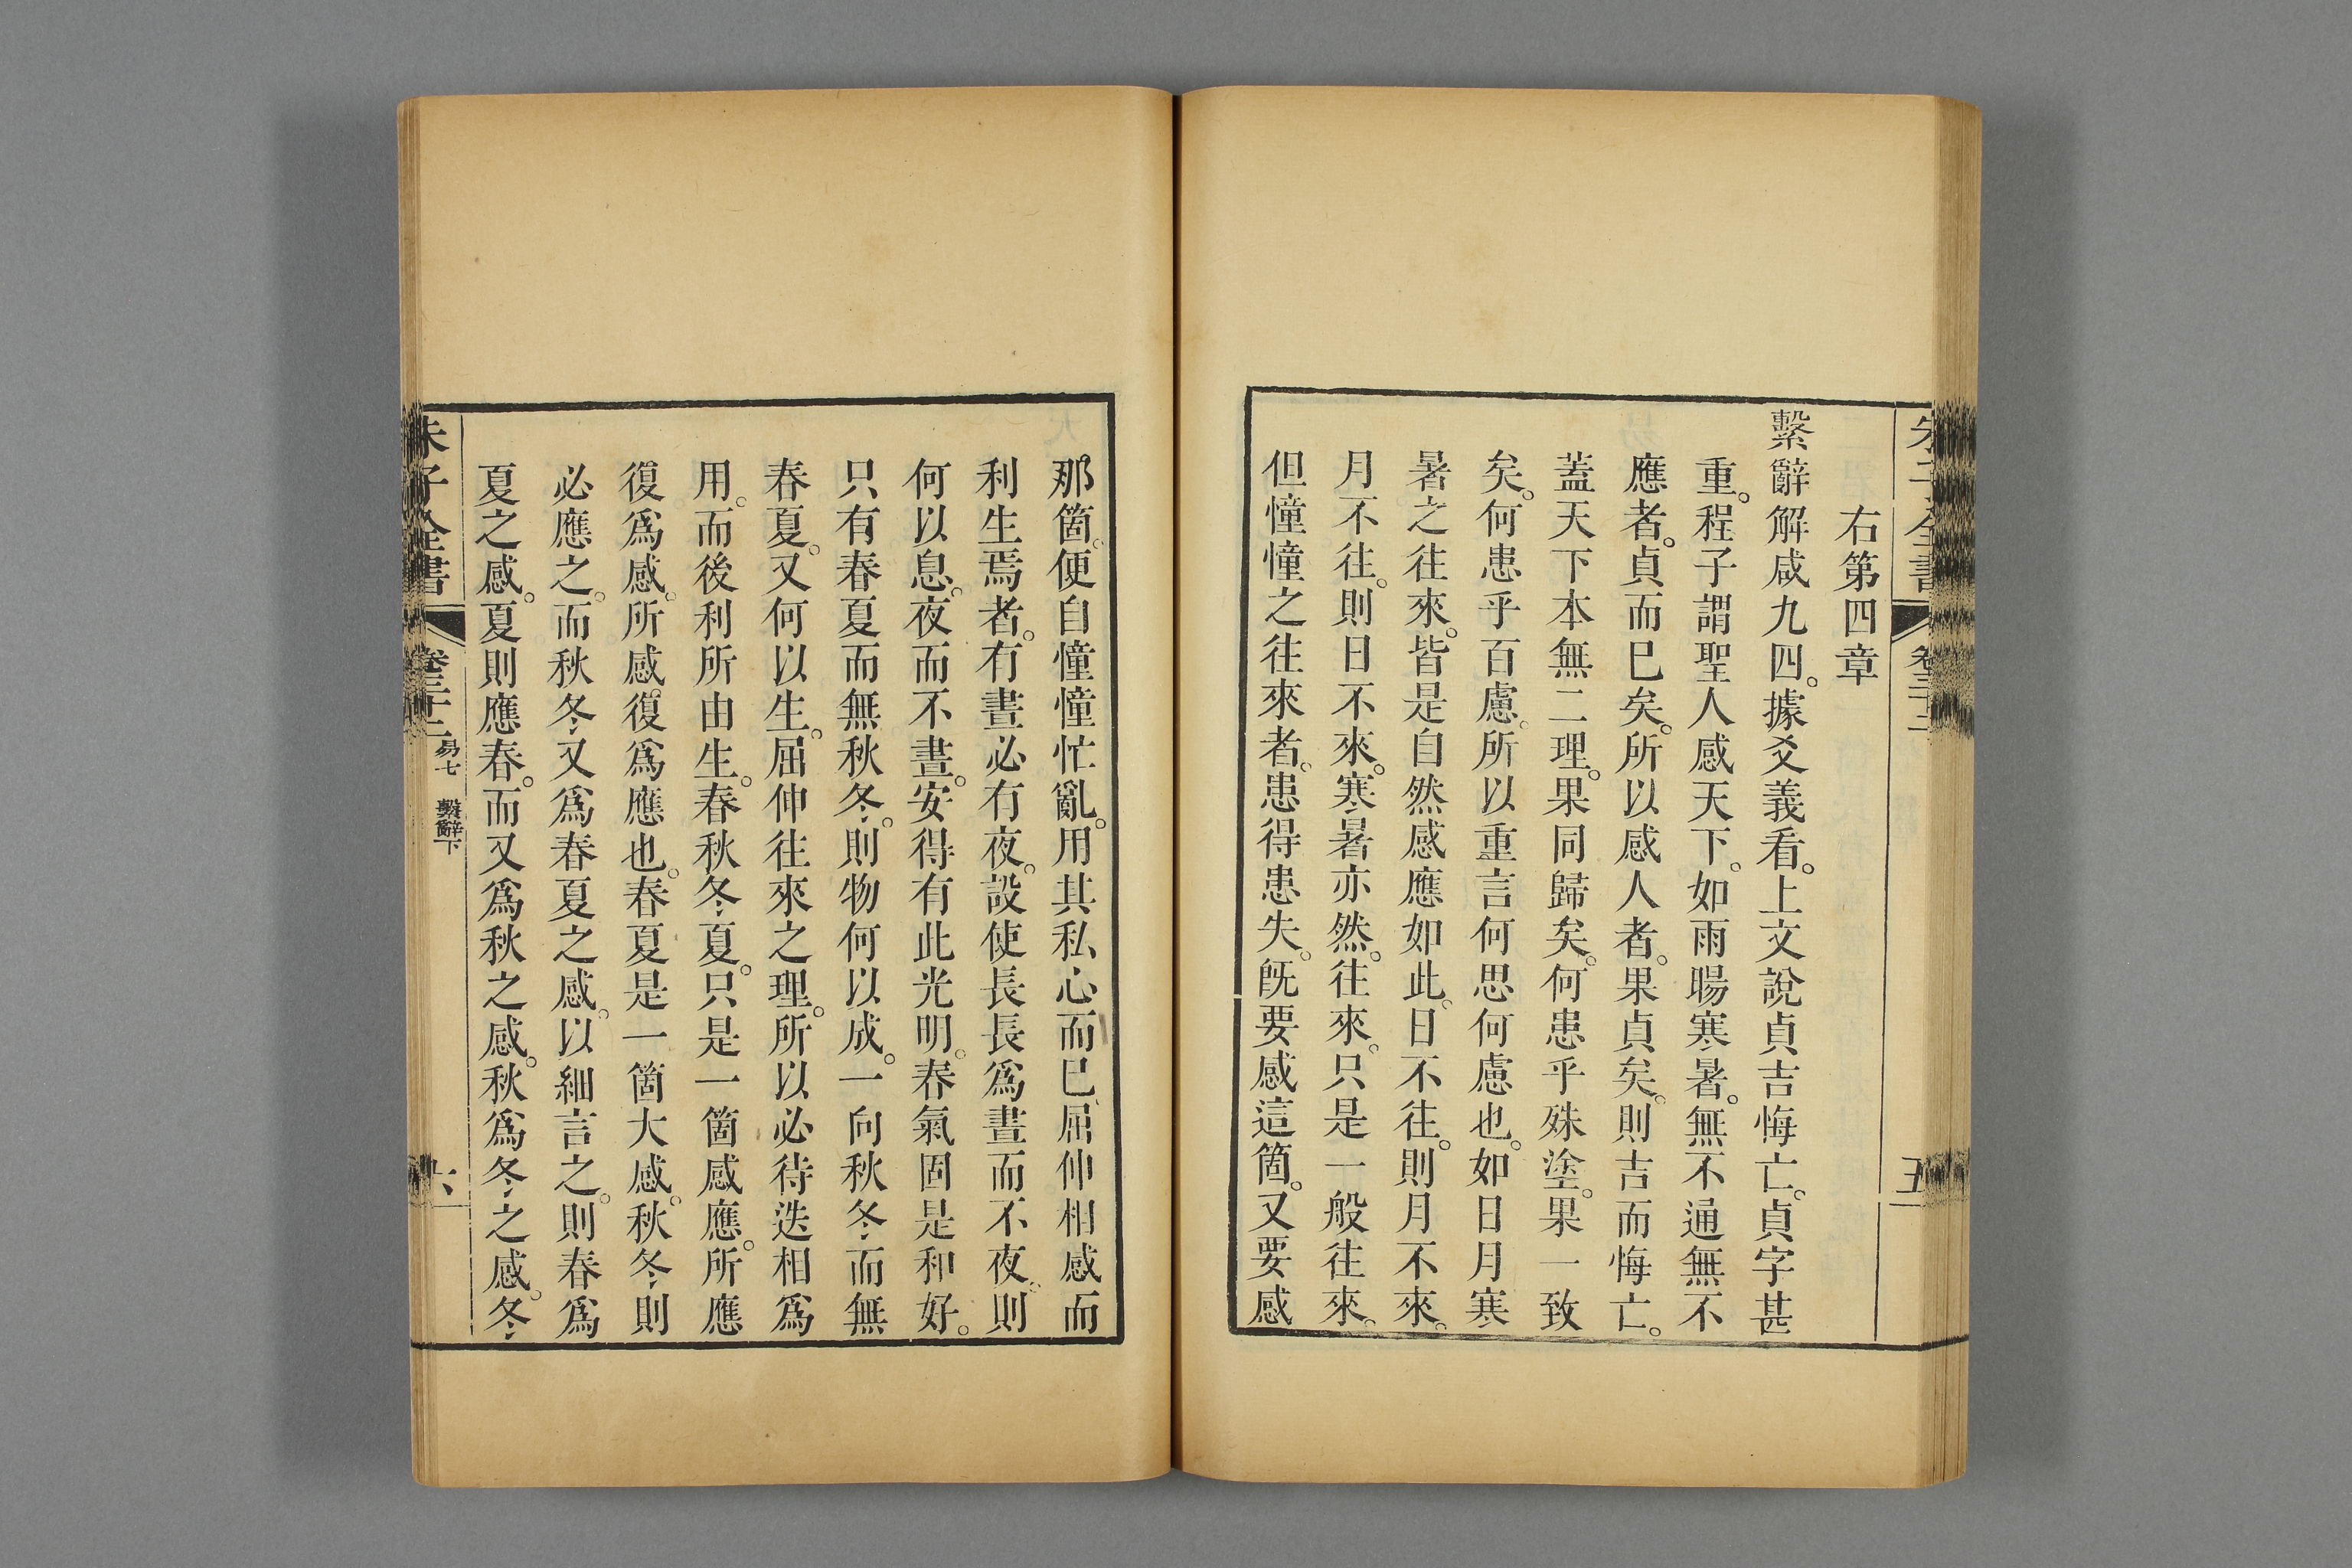 朱子全書 卷三十二 五
右第四章
繫辭解咸九四。據爻義看。上文說貞吉悔亡。貞字甚
重。程子謂聖人感天下。如雨暘寒暑。無不通無不
應者。貞而巳矣。所以感人者。果貞矣。則吉而悔亡。
蓋天下本無二理。果同歸矣。何患乎殊塗。果一致
矣。何患乎百慮。所以重言何思何慮也。如日月寒
暑之往來。皆是自然感應如此。日不往。則月不來。
月不往。則日不來。寒暑亦然。往來。只是一般往來。
但憧憧之往來者。患得患失。旣要感這箇。又要感
那箇。便自憧憧忙亂。用其私心而巳。屈伸相感而
利生焉者。有晝必有夜。設使長長爲晝而不夜。則
何以息。夜而不晝。安得有此光明。春氣固是和好。
只有春夏而無秋冬。則物何以成。一向秋冬而無
春夏。又何以生。屈伸往來之理。所以必待迭相爲
用。而後利所由生。春秋冬夏。只是一箇感應。所應
復爲感。所感。復爲應也。春夏是一箇大感。秋冬則
必應之。而秋冬又爲春夏之感。以細言之。則春爲
夏之感。夏則應春。而又爲秋之感。秋爲冬之感。冬
朱子全書 卷三十二 易七 繫辭下 六